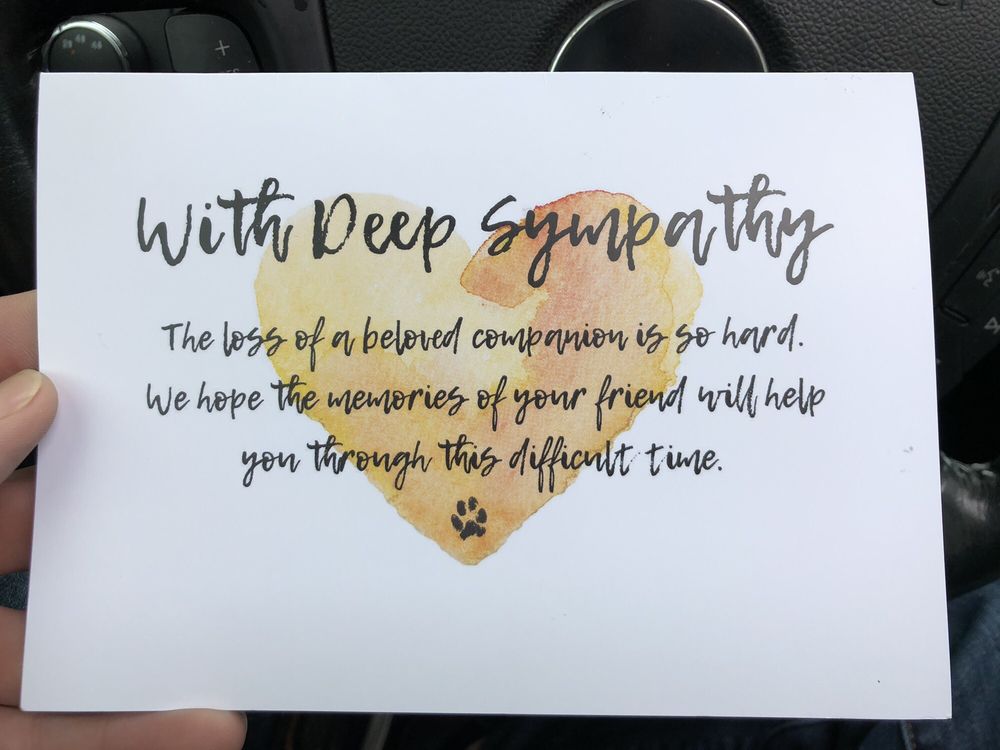 With Deep Sympathy
The loss of a beloved companion is so hard.
We hope the memories of your friend will help
you through this difficult time.